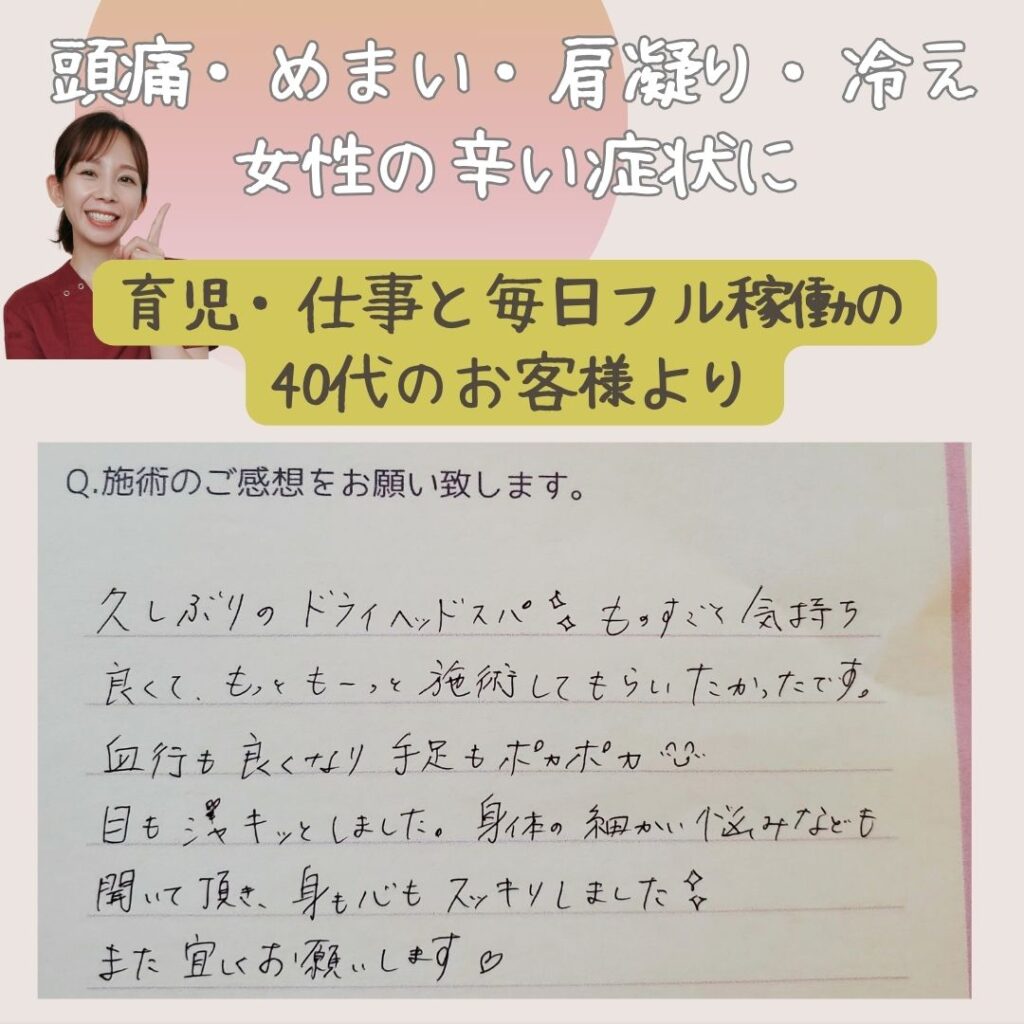 頭痛・めまい・肩凝り・冷え
女性の辛い症状に
育児・仕事と毎日フル稼働の
40代のお客様より
Q.施術のご感想をお願い致します。
久しぶりのドライヘッドスパ ものすごく気持ち
良くて、もっともーっと施術してもらいたかったです。
血行も良くなり手足もポカポカ
目もシャキッとしました。身体の細かい悩みなども
聞いて頂き、身も心もスッキリしました
また宜しくお願いします♡